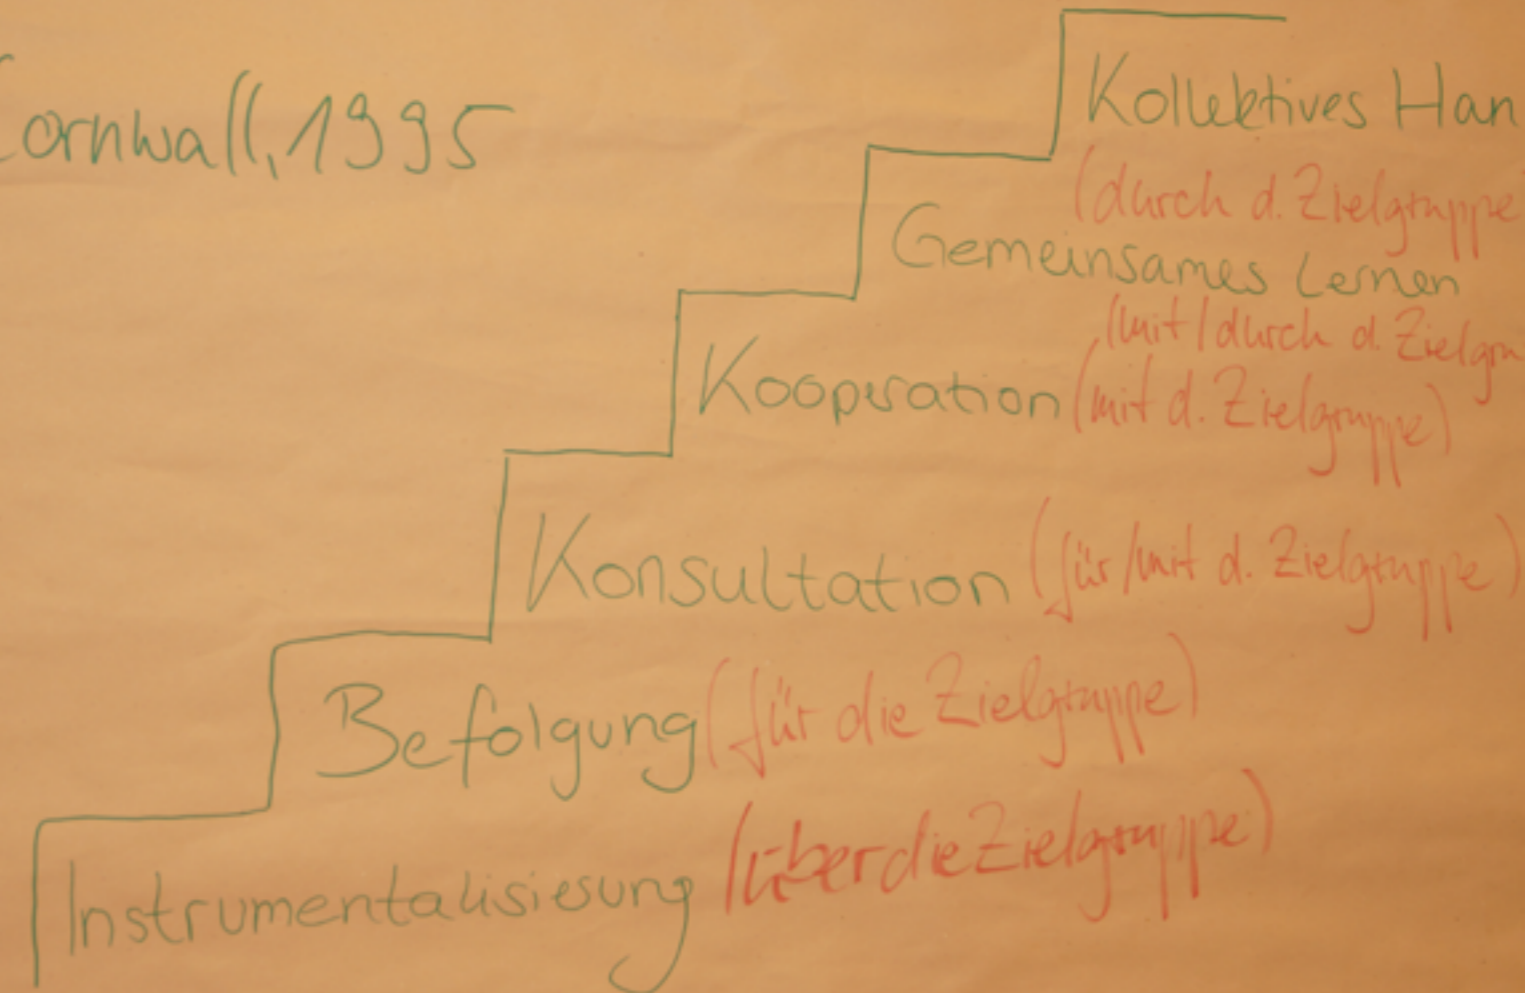 Cornwall, 1995
Kollektives Han
(durch d. Zielgruppe
Gemeinsames Lernen
(mit/durch d. Zielgru
Kooperation (mit d. Zielgruppe)
Konsultation (für/mit d. Zielgruppe)
Befolgung (für die Zielgruppe)
Instrumentalisierung (über die Zielgruppe)